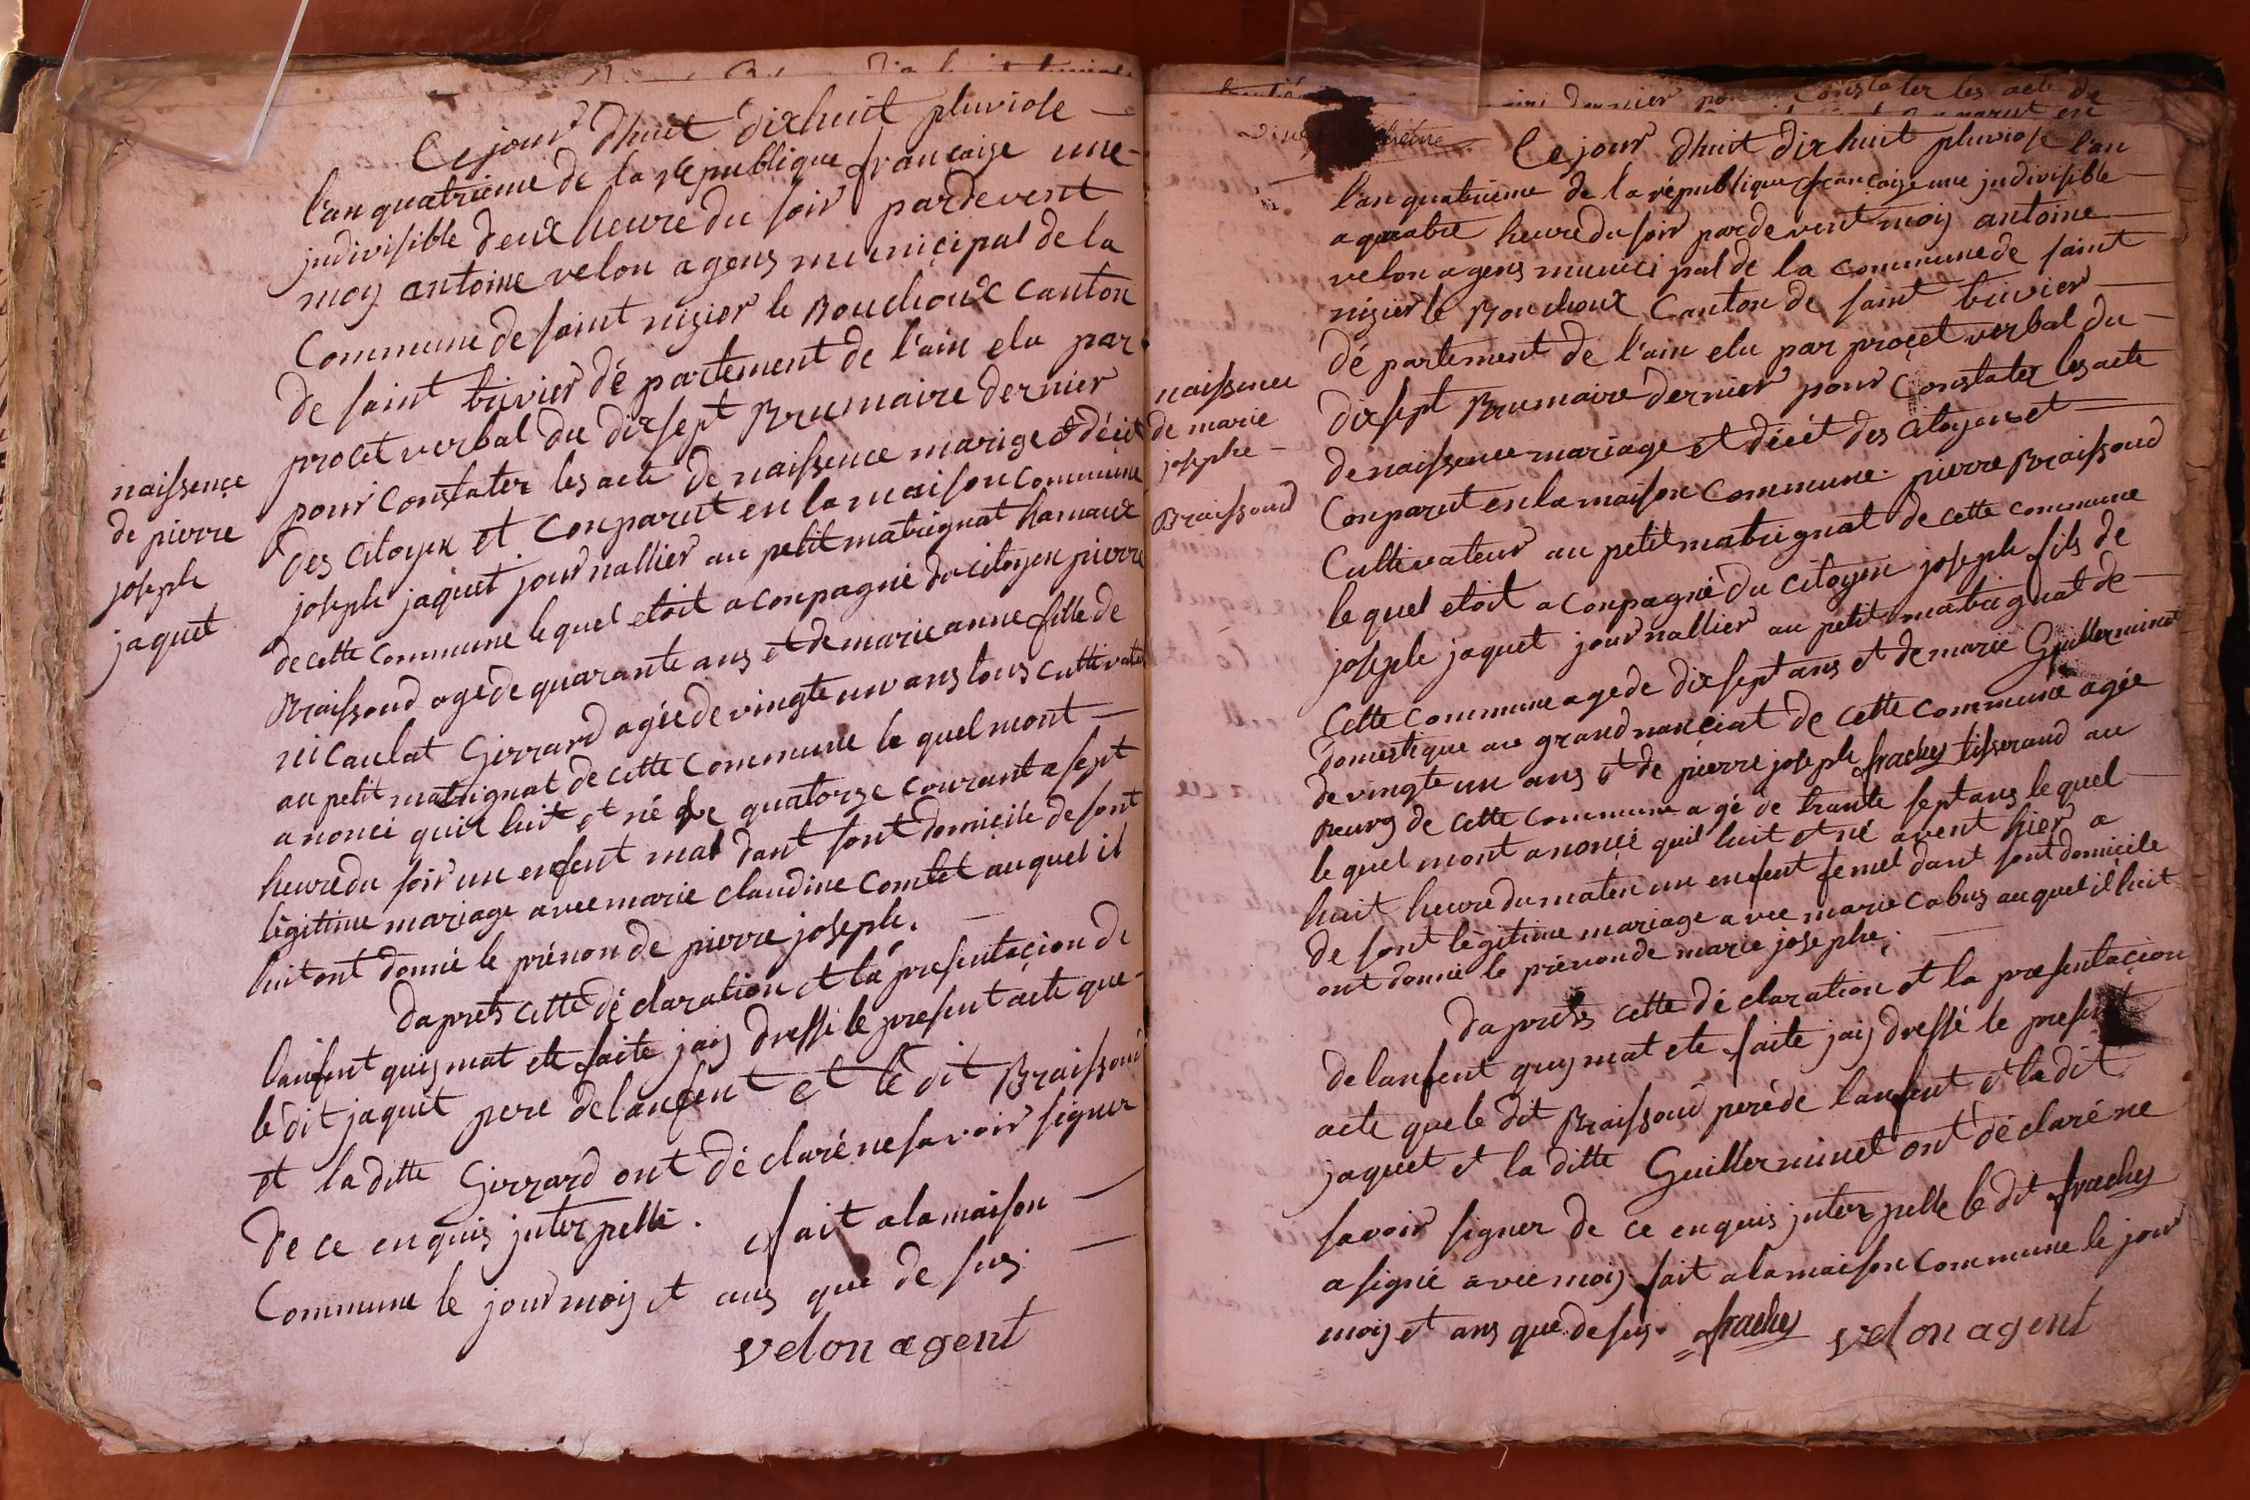 Ce jour dhuit dixhuit pluviose
l'an quatrieme de la république française une
jndivisible deux heure du soir pardevent
moy antoine velon agens municipal de la
Commune de saint nizier le Bouchoux canton
de saint trivier département de l'ain elu par
procet verbal du dixsept Brumaire dernier
pour constater les acte de naissence marige et décèt
des citoyen et conparut en la maison commune
joseph jaquet journallier au petit matrignat hamaux
de cette commune lequel etoit aconpagné du citoyen pierre
Braissoud age de quarante ans et de marie anne fille de
nicaulat Girrard agée de vingte un ans tous cultivate
au petit matrignat de cette commune le quel mont
anoncé quil huit et né le quatorze courant a sept
heure du soir un enfent mal dant sont domicile de sont
légitime mariage avec marie claudine comtet auquel il
huit ont donné le prénon de pierre joseph.
dapres cette déclaration et la presentaçion de
lanfent quy mat ete faite jaiy dressé le present acte que
le dit jaquet pere de lanfent et le dit Braissoud
et la ditte Girrard ont déclaré ne savoir signer
de ce enquis jnterpellé. fait a la maison
Commune le jour mois et ans que de sus
velon agent
naissençe
de pierre
joseph
jaquet
dernier constater les acte de
Ce jour dhuit dix huit pluviose l'an
l'an quatrieme de la république française une jndivisible
a quatre heure du soir pardevent moy antoine
velon agens municipal de la commune de saint
nizier le Bouchoux Canton de saint trivier
département de l'ain elu par proçet verbal du
dixsept Brumaire dernier pour constater les acte
de naissence mariage et décèt des citoyen et
Conparut en la maison commune pierre Braissoud
Cultivateur au petit matrignat de cette commune
le quel etoit aconpagné du citoyen joseph fils de
joseph jaquet journallier au petit matrignat de
cette commune age de dixsept ans et de marie Guillerminet
domestique au grand nanciat de cette commune agée
de vingte un ans et de pierre joseph frachey tisserand au
Beurg de cette commune agé de trante sept ans le quel
le quel mont anoncé quil huit et né avent hier a
huit heure du maten un enfent femel dant sont domicile
de sont légitime mariage avec marie cabus auquel il huit
ont donné le prénon de marie josephe.
dapretes cette déclaration et la presentaçion
de lanfent quy mat ete faite jaiy dressé le present
acte que le dit Braissoud pere de lanfent et le dit
jaquet et la ditte Guillerminet ont déclaré ne
savoir signer de ce enquis jnterpellé le dit frachey
a signé avec moy fait a la maison commune le jour
mois et ans que de sus. frachey velon agent
naissence
de marie
josephe
Braissoud